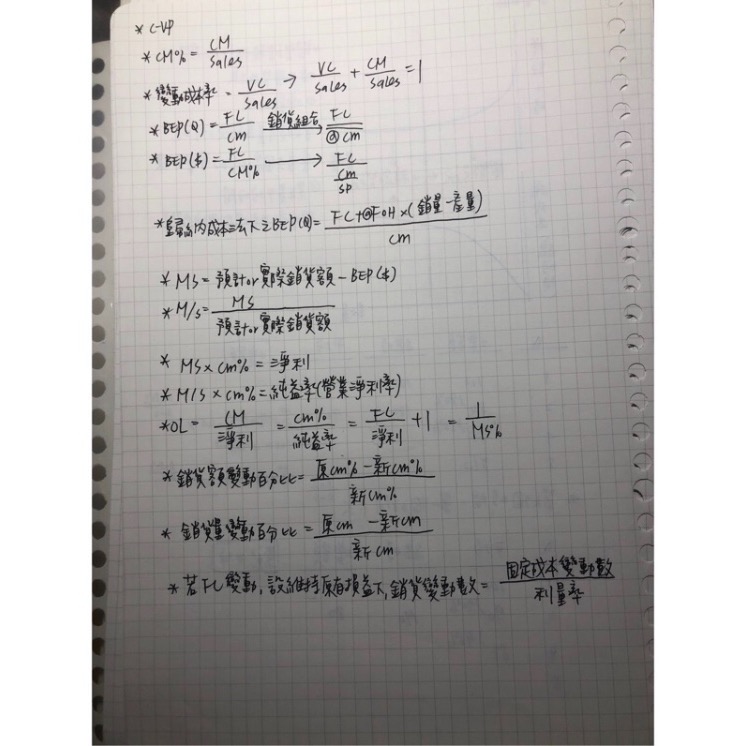 * C-VP
* CM% = CM / Sales
* 變動成本率 = VC / Sales → VC / Sales + CM / Sales = 1
* BEP(Q) = FC / cm 銷貨組合→ FC / @cm
* BEP($) = FC / CM% → FC / (cm / SP)
* 歸納成本法下之BEP(Q) = FC+@FOH×(銷量-產量) / cm
* MS = 預計or實際銷貨額 - BEP($)
* M/S = MS / 預計or實際銷貨額
* MS × cm% = 淨利
* M/S × cm% = 純益率(營業淨利率)
* OL = CM / 淨利 = cm% / 純益率 = FC / 淨利 + 1 = 1 / MS%
* 銷貨額變動百分比 = 原cm% - 新cm% / 新cm%
* 銷貨量變動百分比 = 原cm - 新cm / 新cm
* 若FC變動,設維持原有損益下,銷貨變動數 = 固定成本變動數 / 利量率